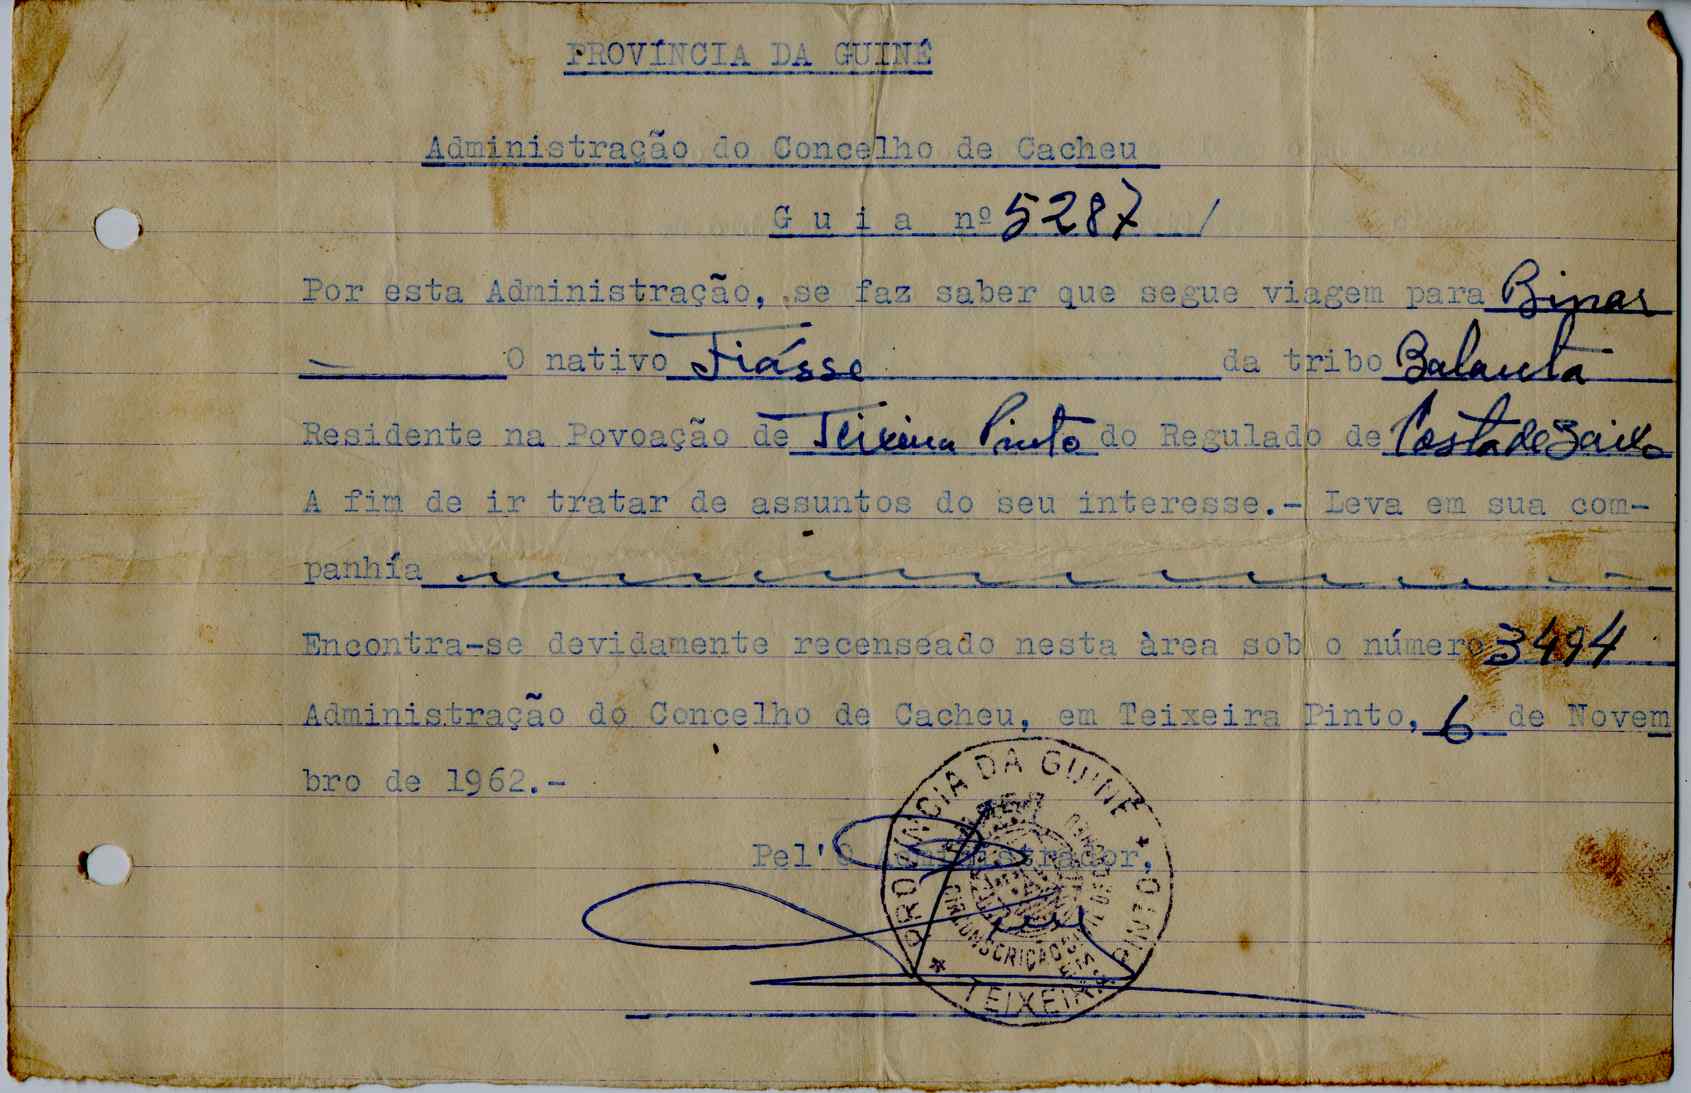 PROVÍNCIA DA GUINÉ
Administração do Concelho de Cacheu
G u i a nº 5287
Por esta Administração, se faz saber que segue viagem para Binar
O nativo Fiásse da tribo Balanta
Residente na Povoação de Teixeira Pinto do Regulado de Costa de Baixo
A fim de ir tratar de assuntos do seu interesse.- Leva em sua com-
panhía
Encontra-se devidamente recenseado nesta àrea sob o número 3494
Administração do Concelho de Cacheu, em Teixeira Pinto, 6 de Novem
bro de 1962.-
Pel'O Administrador,
PROVINCIA DA GUINÉ * TEIXEIRA PINTO *
CIRCUNSCRIÇÃO CIVIL DOS